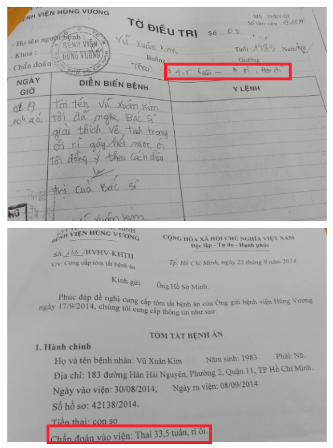 BỆNH VIỆN HÙNG VƯƠNG
TỜ ĐIỀU TRỊ
Số
Họ tên người bệnh Vũ Xuân Kim Tuổi 1983 Nam/Nữ
Khoa: Buồng Giường
BỆNH VIỆN
HÙNG VƯƠNG
Chẩn đoán
NGÀY
GIỜ
DIỄN BIẾN BỆNH
Y LỆNH
Tôi tên Vũ Xuân Kim
tôi đã nghe Bác sĩ
giải thích về tình trạng
ối rỉ
tôi đồng ý theo cách điều
trị của Bác sĩ
Xuân Kim
BỆNH VIỆN HÙNG VƯƠNG
CỘNG HÒA XÃ HỘI CHỦ NGHĨA VIỆT NAM
Độc lập - Tự do - Hạnh phúc
Số /BVHV-KHTH
V/v: Cung cấp tóm tắt bệnh án
Tp. Hồ Chí Minh, ngày 23 tháng 9 năm 2014
Kính gửi: Ông Hồ Sơ Minh.
Phúc đáp đề nghị cung cấp tóm tắt bệnh án của Ông gửi bệnh viện Hùng Vương
ngày 17/9/2014, chúng tôi cung cấp thông tin như sau:
TÓM TẮT BỆNH ÁN
1. Hành chính
Họ và tên bệnh nhân: Vũ Xuân Kim Năm sinh: 1983 Phái: Nữ.
Địa chỉ: 183 đường Hàn Hải Nguyên, Phường 2, Quận 11, TP Hồ Chí Minh.
Ngày vào viện: 30/08/2014; Ngày ra viện: 08/09/2014
Số hồ sơ: 42138/2014.
Tiền thai: con so
Chẩn đoán vào viện: Thai 33,5 tuần, rỉ ối.